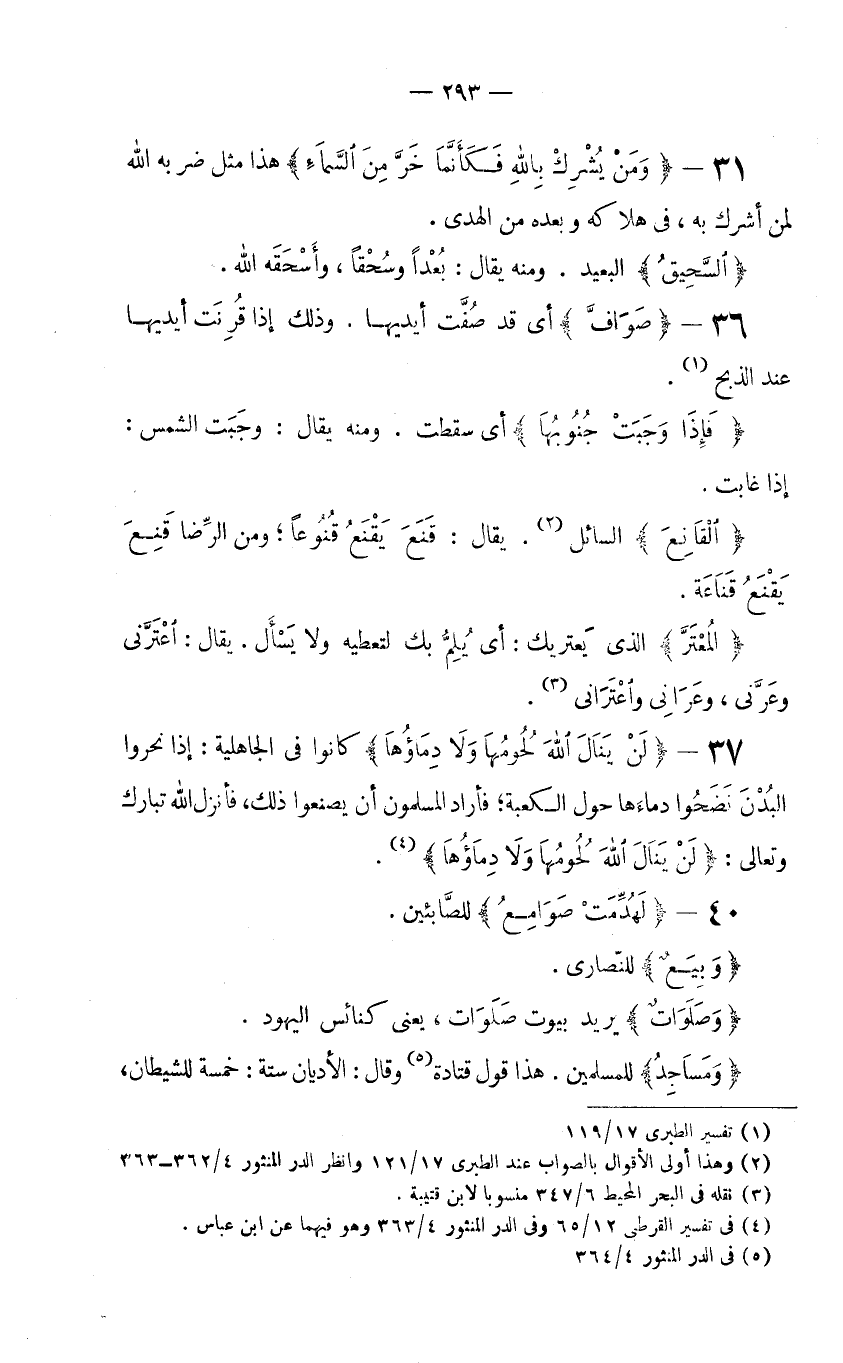 — ٢٩٣ —
٣١ — ﴿ وَمَنْ يُشْرِكْ بِاللهِ فَكَأَنَّمَا خَرَّ مِنَ ٱلسَّمَاءِ ﴾ هذا مثل ضربه الله
لمن أشرك به ، فى هلاكه وبعده من الهدى .
﴿ ٱلسَّحِيقُ ﴾ البعيد . ومنه يقال : بُعْداً وسُحْقاً ، وأَسْحَقَه الله .
٣٦ — ﴿ صَوَافَّ ﴾ أى قد صُفَّت أيديها . وذلك إذا قُرِنَت أيديها
عند الذبح (١) .
﴿ فَإِذَا وَجَبَتْ جُنُوبُهَا ﴾ أى سقطت . ومنه يقال : وجَبَت الشمس :
إذا غابت .
﴿ ٱلْقَانِعَ ﴾ السائل (٢) . يقال : قَنَعَ يَقْنَعُ قُنُوعاً ؛ ومن الرِّضا قَنِعَ
يَقْنَعُ قَنَاعَة .
﴿ المُعْتَرَّ ﴾ الذى يَعتريك : أى يُلِمُّ بك لتعطيه ولا يَسْأَل . يقال : ٱعْتَرَّنى
وعَرَّنى ، وعَرَانِى وٱعْتَرَانى (٣) .
٣٧ — ﴿ لَنْ يَنَالَ ٱللهَ لُحُومُهَا وَلَا دِمَاؤُهَا ﴾ كانوا فى الجاهلية : إذا نحروا
البُدْنَ نَضَحُوا دماءَها حول الكعبة ؛ فأراد المسلمون أن يصنعوا ذلك، فأنزل الله تبارك
وتعالى : ﴿ لَنْ يَنَالَ ٱللهَ لُحُومُهَا وَلَا دِمَاؤُهَا ﴾ (٤) .
٤٠ — ﴿ لَهُدِّمَتْ صَوَامِعُ ﴾ للصَّابئين .
﴿ وَبِيَعٌ ﴾ للنّصارى .
﴿ وَصَلَوَاتٌ ﴾ يريد بيوت صَلَوَات ، يعنى كنائس اليهود .
﴿ وَمَسَاجِدُ ﴾ للمسلمين . هذا قول قتادة (٥) وقال : الأديان ستة : خمسة للشيطان،
(١) تفسير الطبرى ١١٩/١٧
(٢) وهذا أولى الأقوال بالصواب عند الطبرى ١٢١/١٧ وانظر الدر المنثور ٣٦٢/٤—٣٦٣
(٣) نقله فى البحر المحيط ٣٤٧/٦ منسوبا لابن قتيبة .
(٤) فى تفسير القرطبى ٦٥/١٢ وفى الدر المنثور ٣٦٣/٤ وهو فيهما عن ابن عباس .
(٥) فى الدر المنثور ٣٦٤/٤